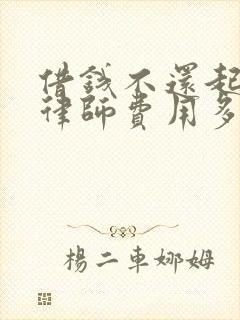 借錢不還起
律師費用多
楊二車娜姆